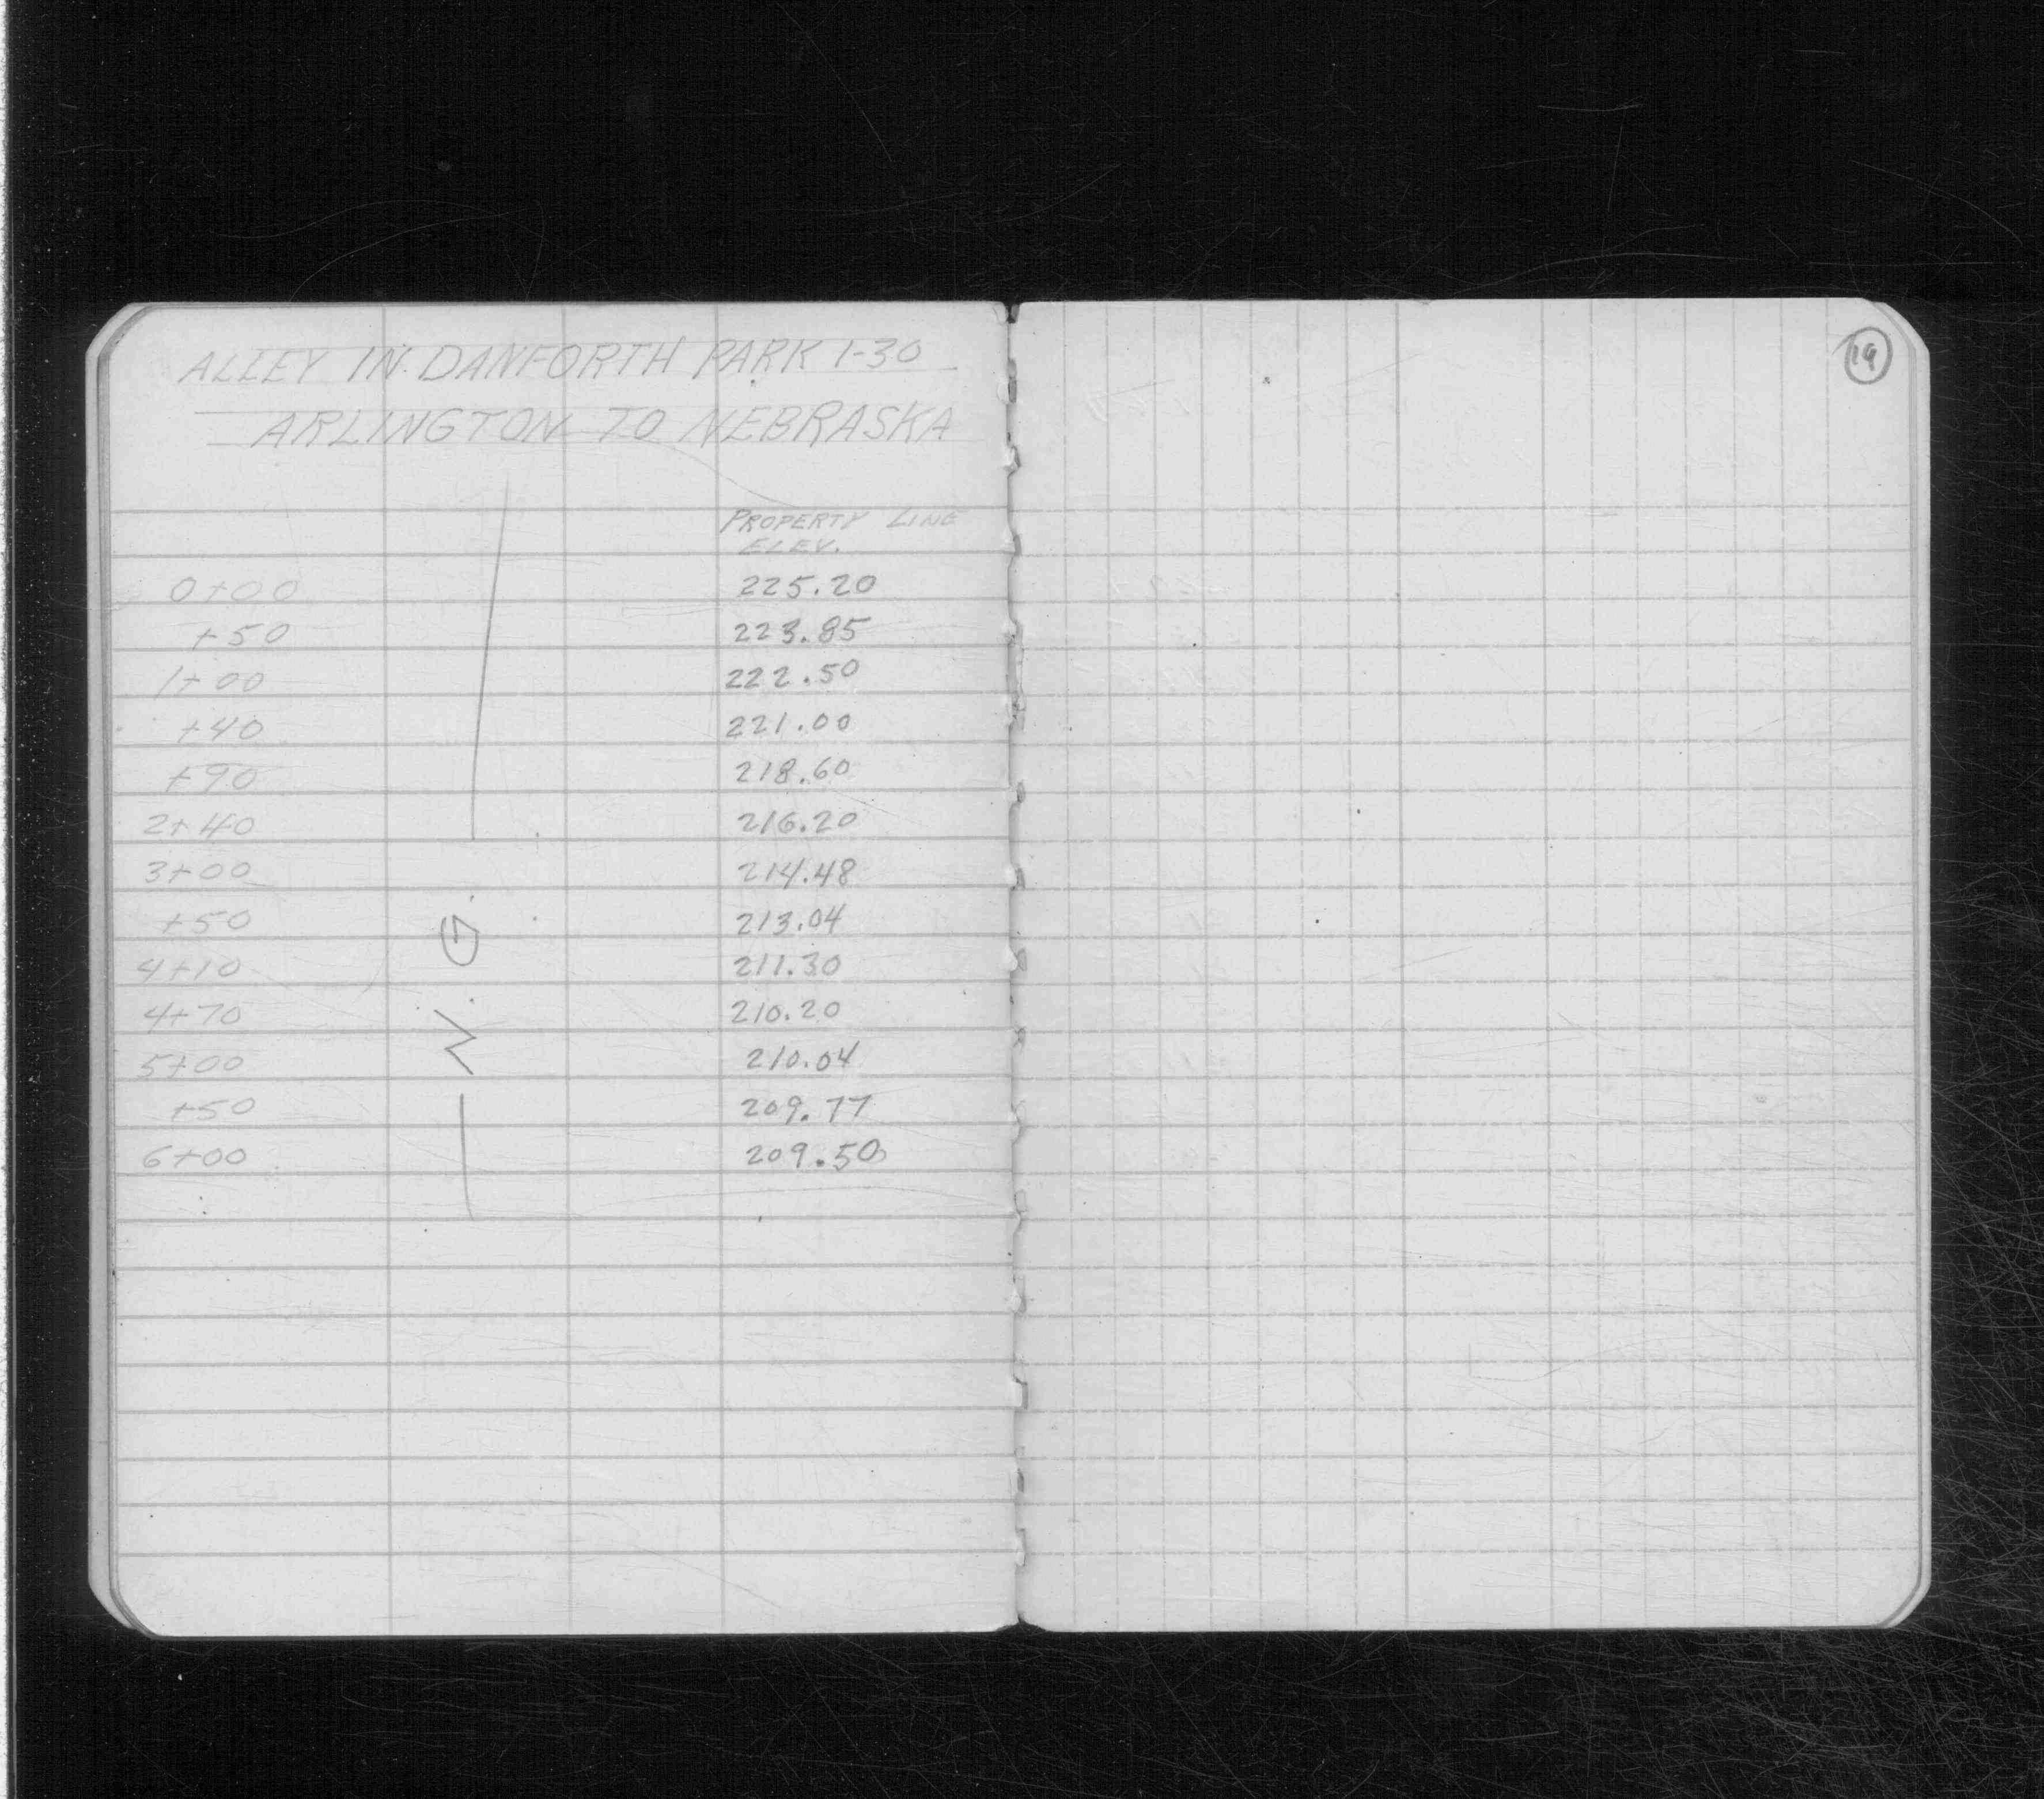 ALLEY IN DANFORTH PARK 1-30
ARLINGTON TO NEBRASKA
PROPERTY LINE
ELEV.
0+00 225.20
+50 223.85
1+00 222.50
+40 221.00
+90 218.60
2+40 216.20
3+00 214.48
+50 213.04
4+10 211.30
4+70 210.20
5+00 210.04
+50 209.77
6+00 209.50
N.G.
19